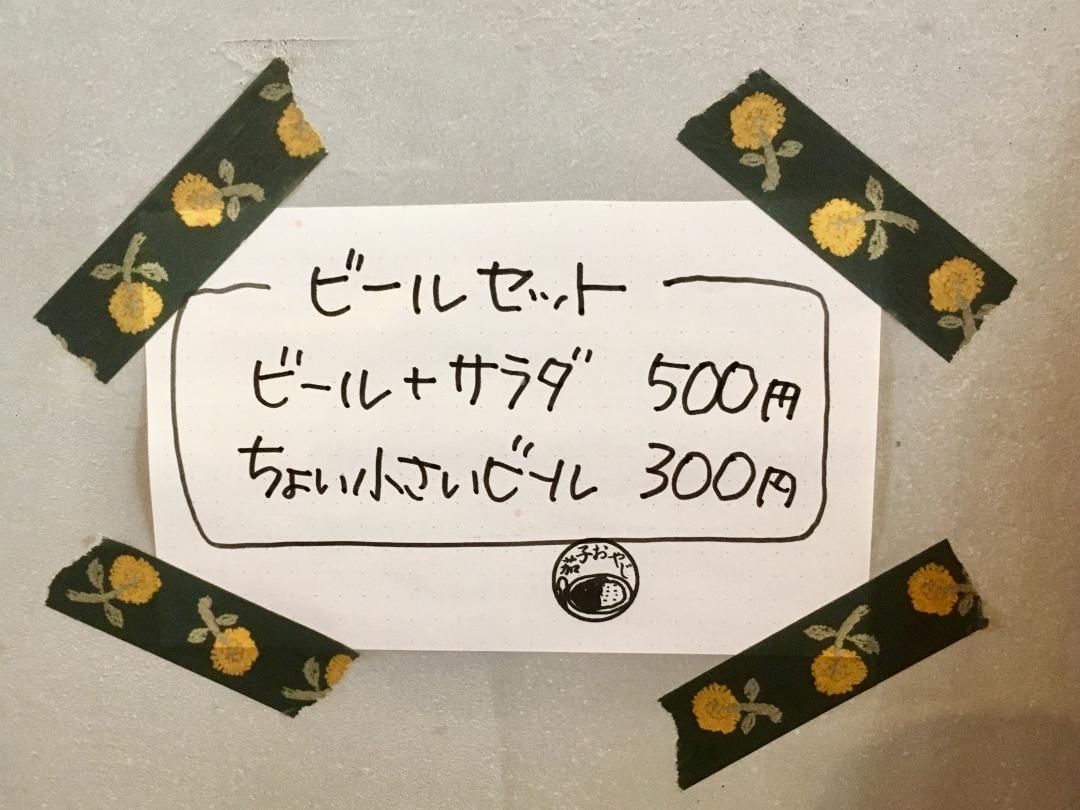 ビールセット
ビール+サラダ 500円
ちょい小さいビール 300円
茄子おやじ